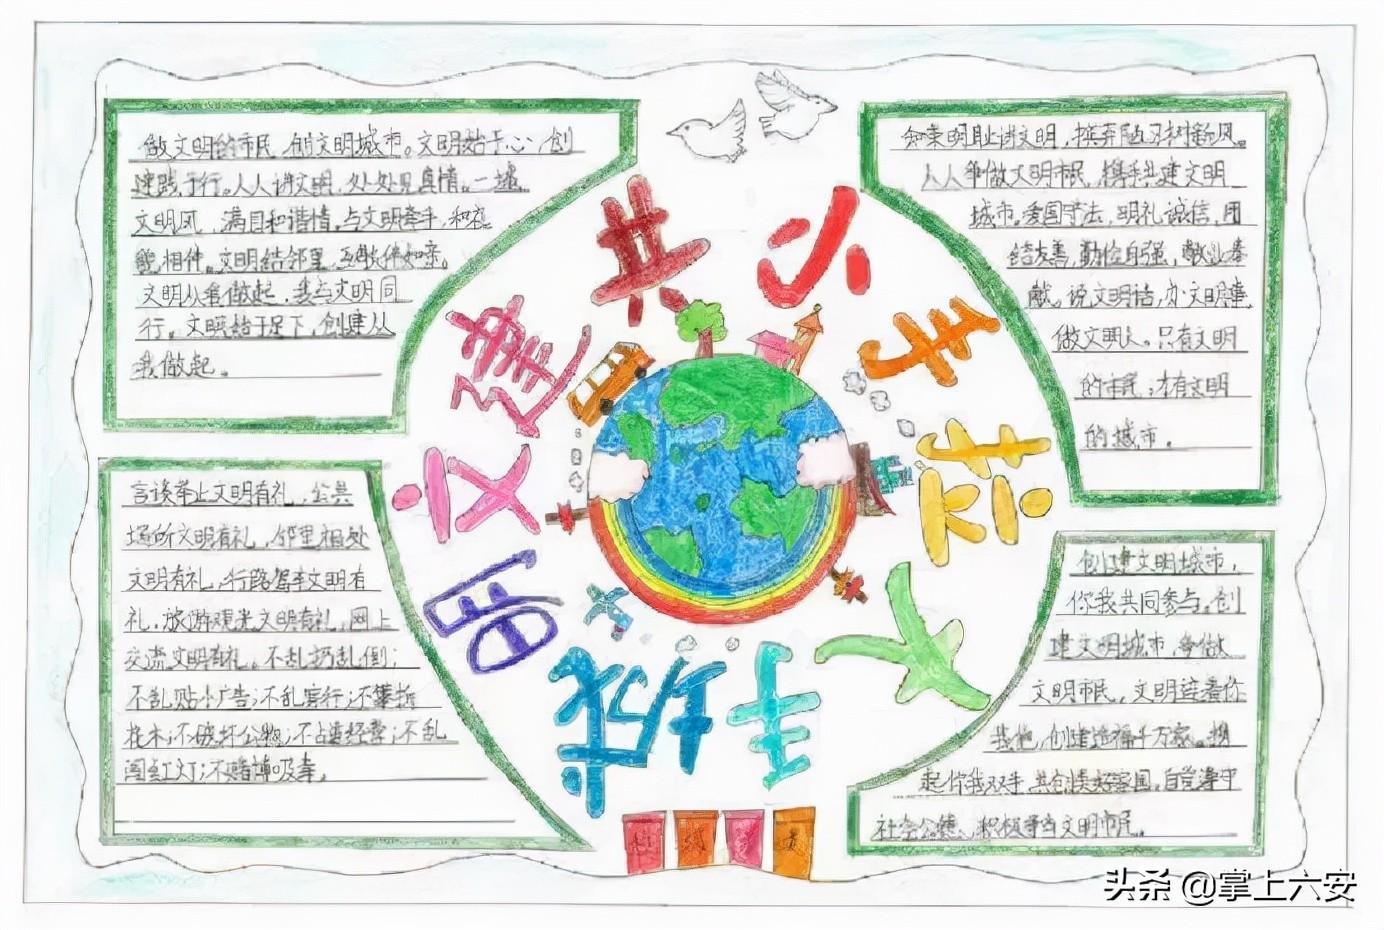 小手牵大手
共建文明城
做文明的市民,创文明城市。文明始于心,创
建践于行。人人讲文明,处处见真情。一缕
文明风,满目和谐情。与文明牵手,和
相伴。文明结邻里,
文明从我做起,我与文明同
行。文明始于足下,创建从
我做起。
知荣明耻讲文明,摈弃陋习树新风。
人人争做文明市民,携手共建文明
城市。爱国守法,明礼诚信,团
结友善,勤俭自强,敬业奉
献。说文明话,办文明事,
做文明人。只有文明
的市民,才有文明
的城市。
言谈举止文明有礼,公共
场所文明有礼,邻里相处
文明有礼,行路驾车文明有
礼,旅游观光文明有礼,网上
交流文明有礼。不乱扔乱倒;
不乱贴小广告;不乱穿行;不攀折
花木;不破坏公物;不占道经营;不乱
闯红灯;不赌博吸毒。
创建文明城市,
你我共同参与。创
建文明城市,争做
文明市民,文明连着你
我他,创建造福千万家。携
起你我双手,共创美好家园。自觉遵守
社会公德、积极争当文明市民。
头条 @掌上六安